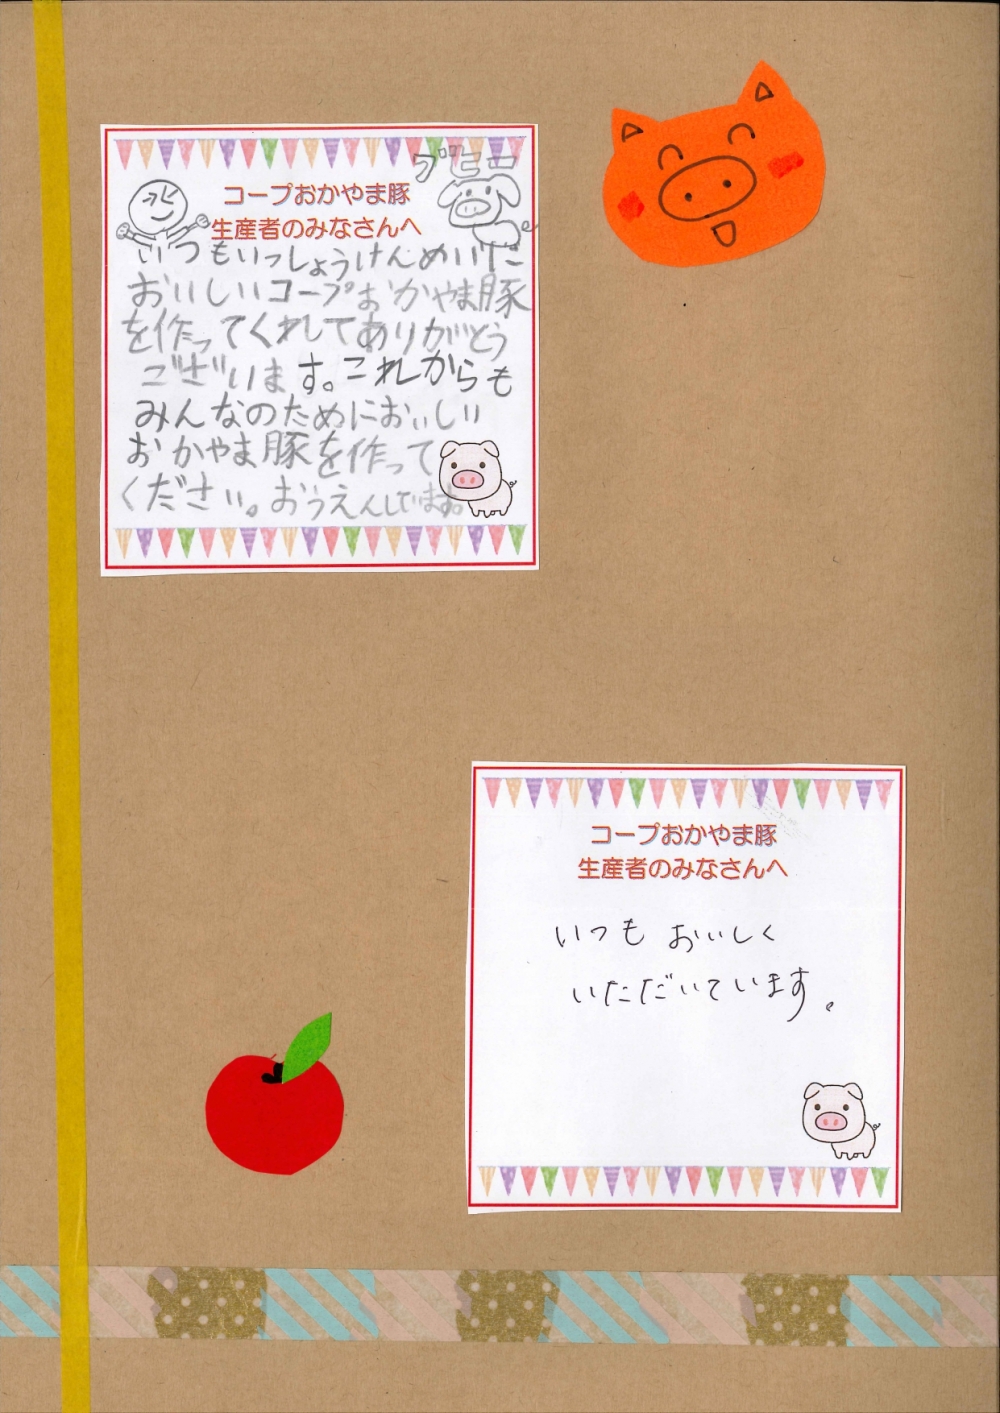 ブヒー
コープおかやま豚
生産者のみなさんへ
いつもいっしょうけんめいに
おいしいコープおかやま豚
を作ってくれてありがとう
ございます。これからも
みんなのためにおいしい
おかやま豚を作って
ください。おうえんしています。
コープおかやま豚
生産者のみなさんへ
いつもおいしく
いただいています。